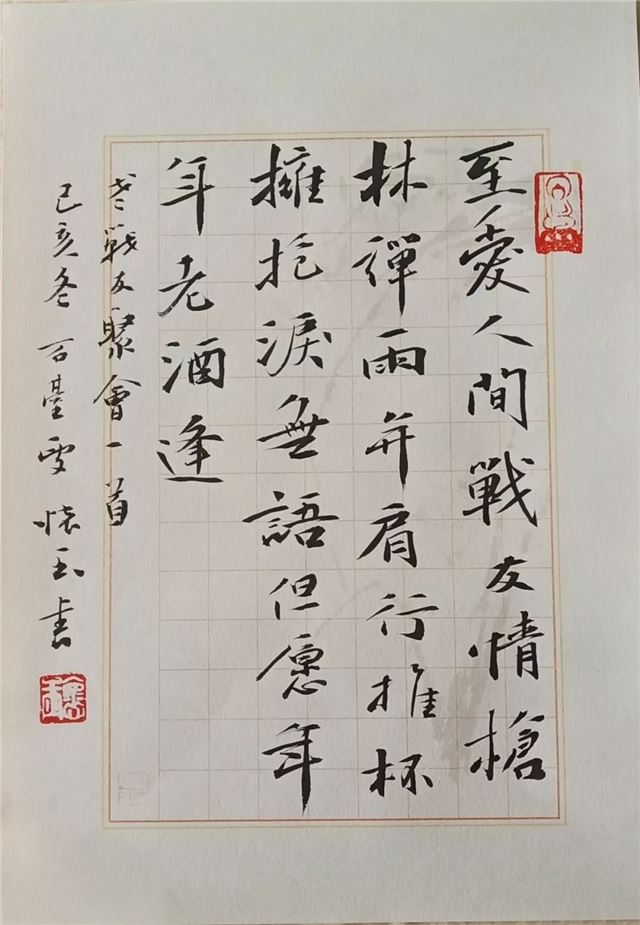 至愛人間戰友情槍
林彈雨并肩行推杯
擁抱淚無語但愿年
年老酒逢
老戰友聚會一首
己亥冬 臺雪 懷玉書